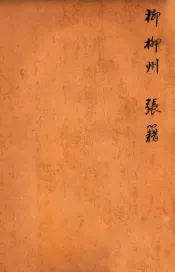 柳柳州 張籍